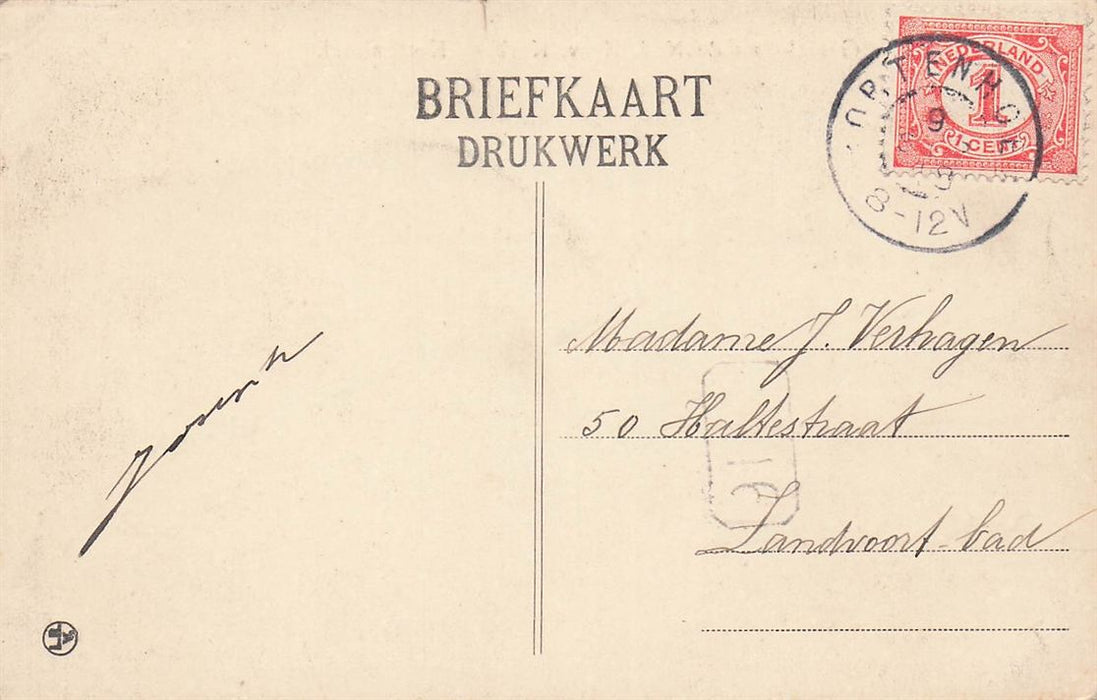 BRIEFKAART
DRUKWERK
NEDERLAND
1
1 CENT
ORTENHO
9
8-12V
Madame J. Verhagen
50 Haltestraat
Zandvoort-bad